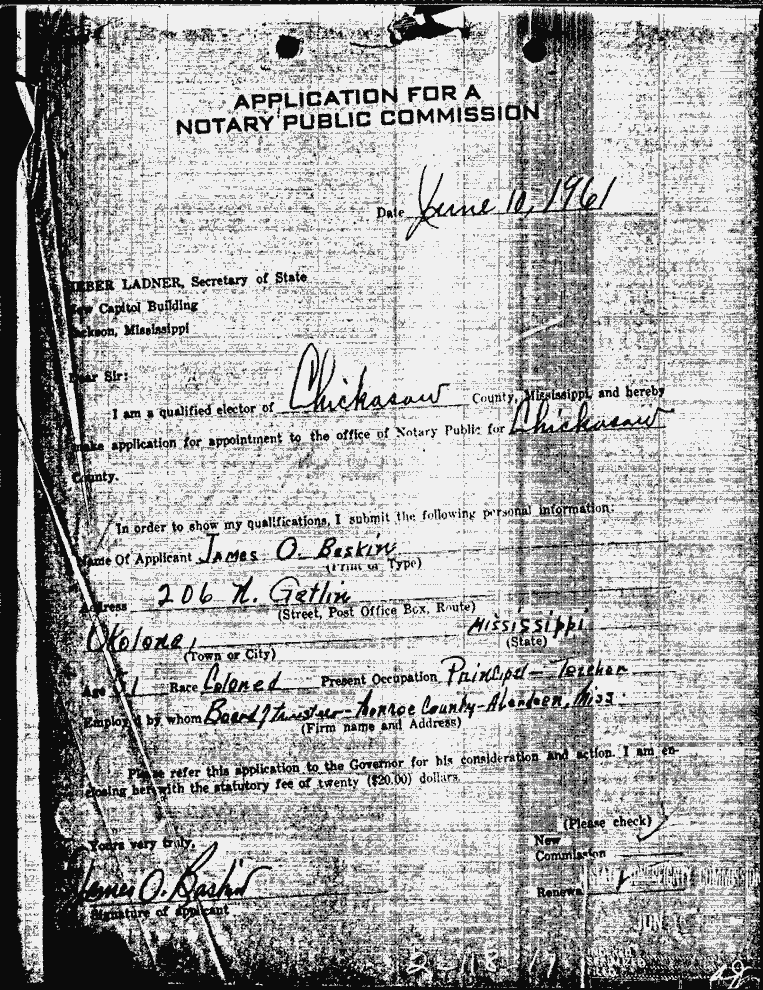 APPLICATION FOR A
NOTARY PUBLIC COMMISSION
Date June 10, 1961
HEBER LADNER, Secretary of State
New Capitol Building
Jackson, Mississippi
Dear Sir:
I am a qualified elector of Chickasaw County, Mississippi, and hereby
make application for appointment to the office of Notary Public for Chickasaw
County.
In order to show my qualifications, I submit the following personal information:
Name Of Applicant James O. Baskin
(Print or Type)
Address 206 N. Gatlin
(Street, Post Office Box, Route)
Okolona, Mississippi
(Town or City) (State)
Age 51 Race Colored Present Occupation Principal - Teacher
Employed by whom Board of trustees - Monroe County - Aberdeen, Miss.
(Firm name and Address)
Please refer this application to the Governor for his consideration and action. I am en-
closing herewith the statutory fee of twenty ($20.00) dollars.
Yours very truly,
(Please check)
New
Commission
James O. Baskin
Renewal
Signature of applicant
JUN